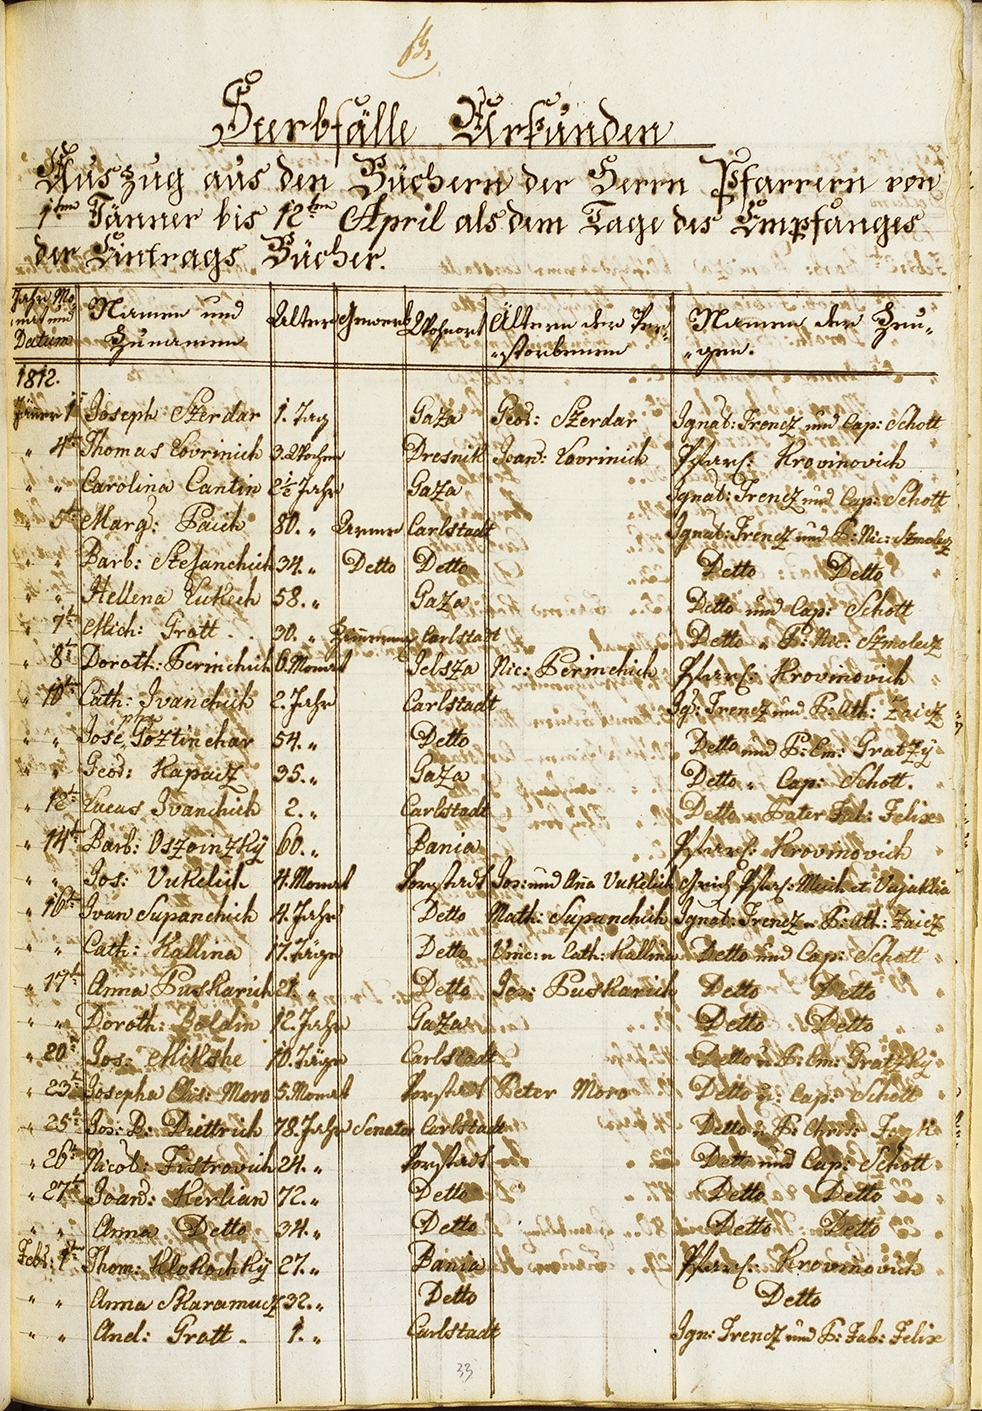 Sterbfälle Urkunden
Auszug aus den Büchern der Herrn Pfarrern von
1ten Jänner bis 12ten April als dem Tage des Empfanges
der Eintrags Bücher.
Jahr Mo,, nat und Datum | Namen und Zunamen | Alter | Gewerb | Wohnort | Ältern der Ver,, storbenen | Namen der Zeu,, gen.
1812.
Jänner 1t Joseph Szerdar 1. Tag Gaza Geo: Szerdar Ignat: Trencz und Cap: Schott
„ 4t Thomas Lovrinich 3. Wochen Dresnik Joan: Lovrinich Pfarf: Krovinovich
„ „ Carolina Cantin 2½ Jahr Gaza Ignat: Trencz und Cap: Schott
5t Marg: Pauch 80. „ Arme Carlstadt Ignat: Trencz und P: Nic: Szmolecz
„ „ Barb: Stefanchich 34. „ Detto Detto Detto Detto
„ „ Hellena Lukich 58. „ Gaza Detto und Cap: Schott
7t Mich: Gratt 30. „ Carlstadt Detto „ P: Nic: Szmolecz
„ 8t Doroth: Perinchich 6. Monat Jelsza Nic: Perinchich Pfarf: Krovinovich
„ 10t Cath: Ivanchich 2. Jahr Carlstadt Ig: Trencz und P: Ath: Zaicz
„ „ Josepha Goztinchar 54. „ Detto Detto und P: Em: Gratzÿ
„ „ Geo: Kapacz 35. „ Gaza Detto „ Cap: Schott.
„ 12t Lucas Ivanchich 2. „ Carlstadt Detto „ Pater Fab: Felix
„ 14t Barb: Oszoinzkÿ 60. „ Bania Pfarf: Krovinovich
„ „ Jos: Vukelich 4. Monat Vorstadt Jos: und Ana Vukelich Pfar: Meich et Vujaklia
„ 16t Ivan Supanchich 4. Jahr Detto Math: Supanchich Ignat: Trencz u P: Ath: Zaicz
„ „ Cath: Kallina 17. Täge Detto Vinc: u Cath: Kallina Detto und Cap: Schott
„ 17t Anna Puskarich 21. „ Detto Jos: Puskarich Detto Detto
„ „ Doroth: Boldin 12. Jahr Gaza Detto Detto
„ 20t Jos: Milkshe 10. Täge Carlstadt Detto u P: Em: Gratzkÿ
„ 23t Josepha Elis: Moro 5. Monat Vorstadt Peter Moro Detto u: Cap: Schott
„ 25t Jos: B: Diettrich 78. Jahr Senator Carlstadt Detto u P:
„ 26t Nicol: Fistrovich 24. „ Vorstadt Detto und Cap: Schott
„ 27t Joan: Kerlian 72. „ Detto Detto Detto
„ „ Anna Detto 34. „ Detto Detto Detto
Feb: 1ten Thom: Klokochkÿ 27. „ Bania Pfarf: Krovinovich
„ „ Anna Skaramucz 32. „ Detto Detto
„ „ And: Gratt. 1. „ Carlstadt Ign: Trencz und P: Fab: Felix
33